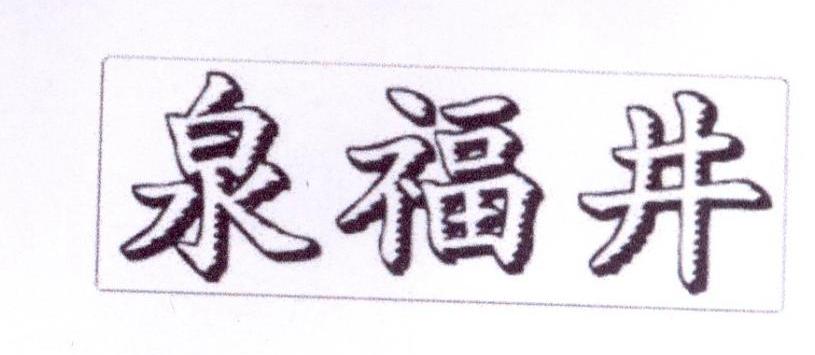 泉福井